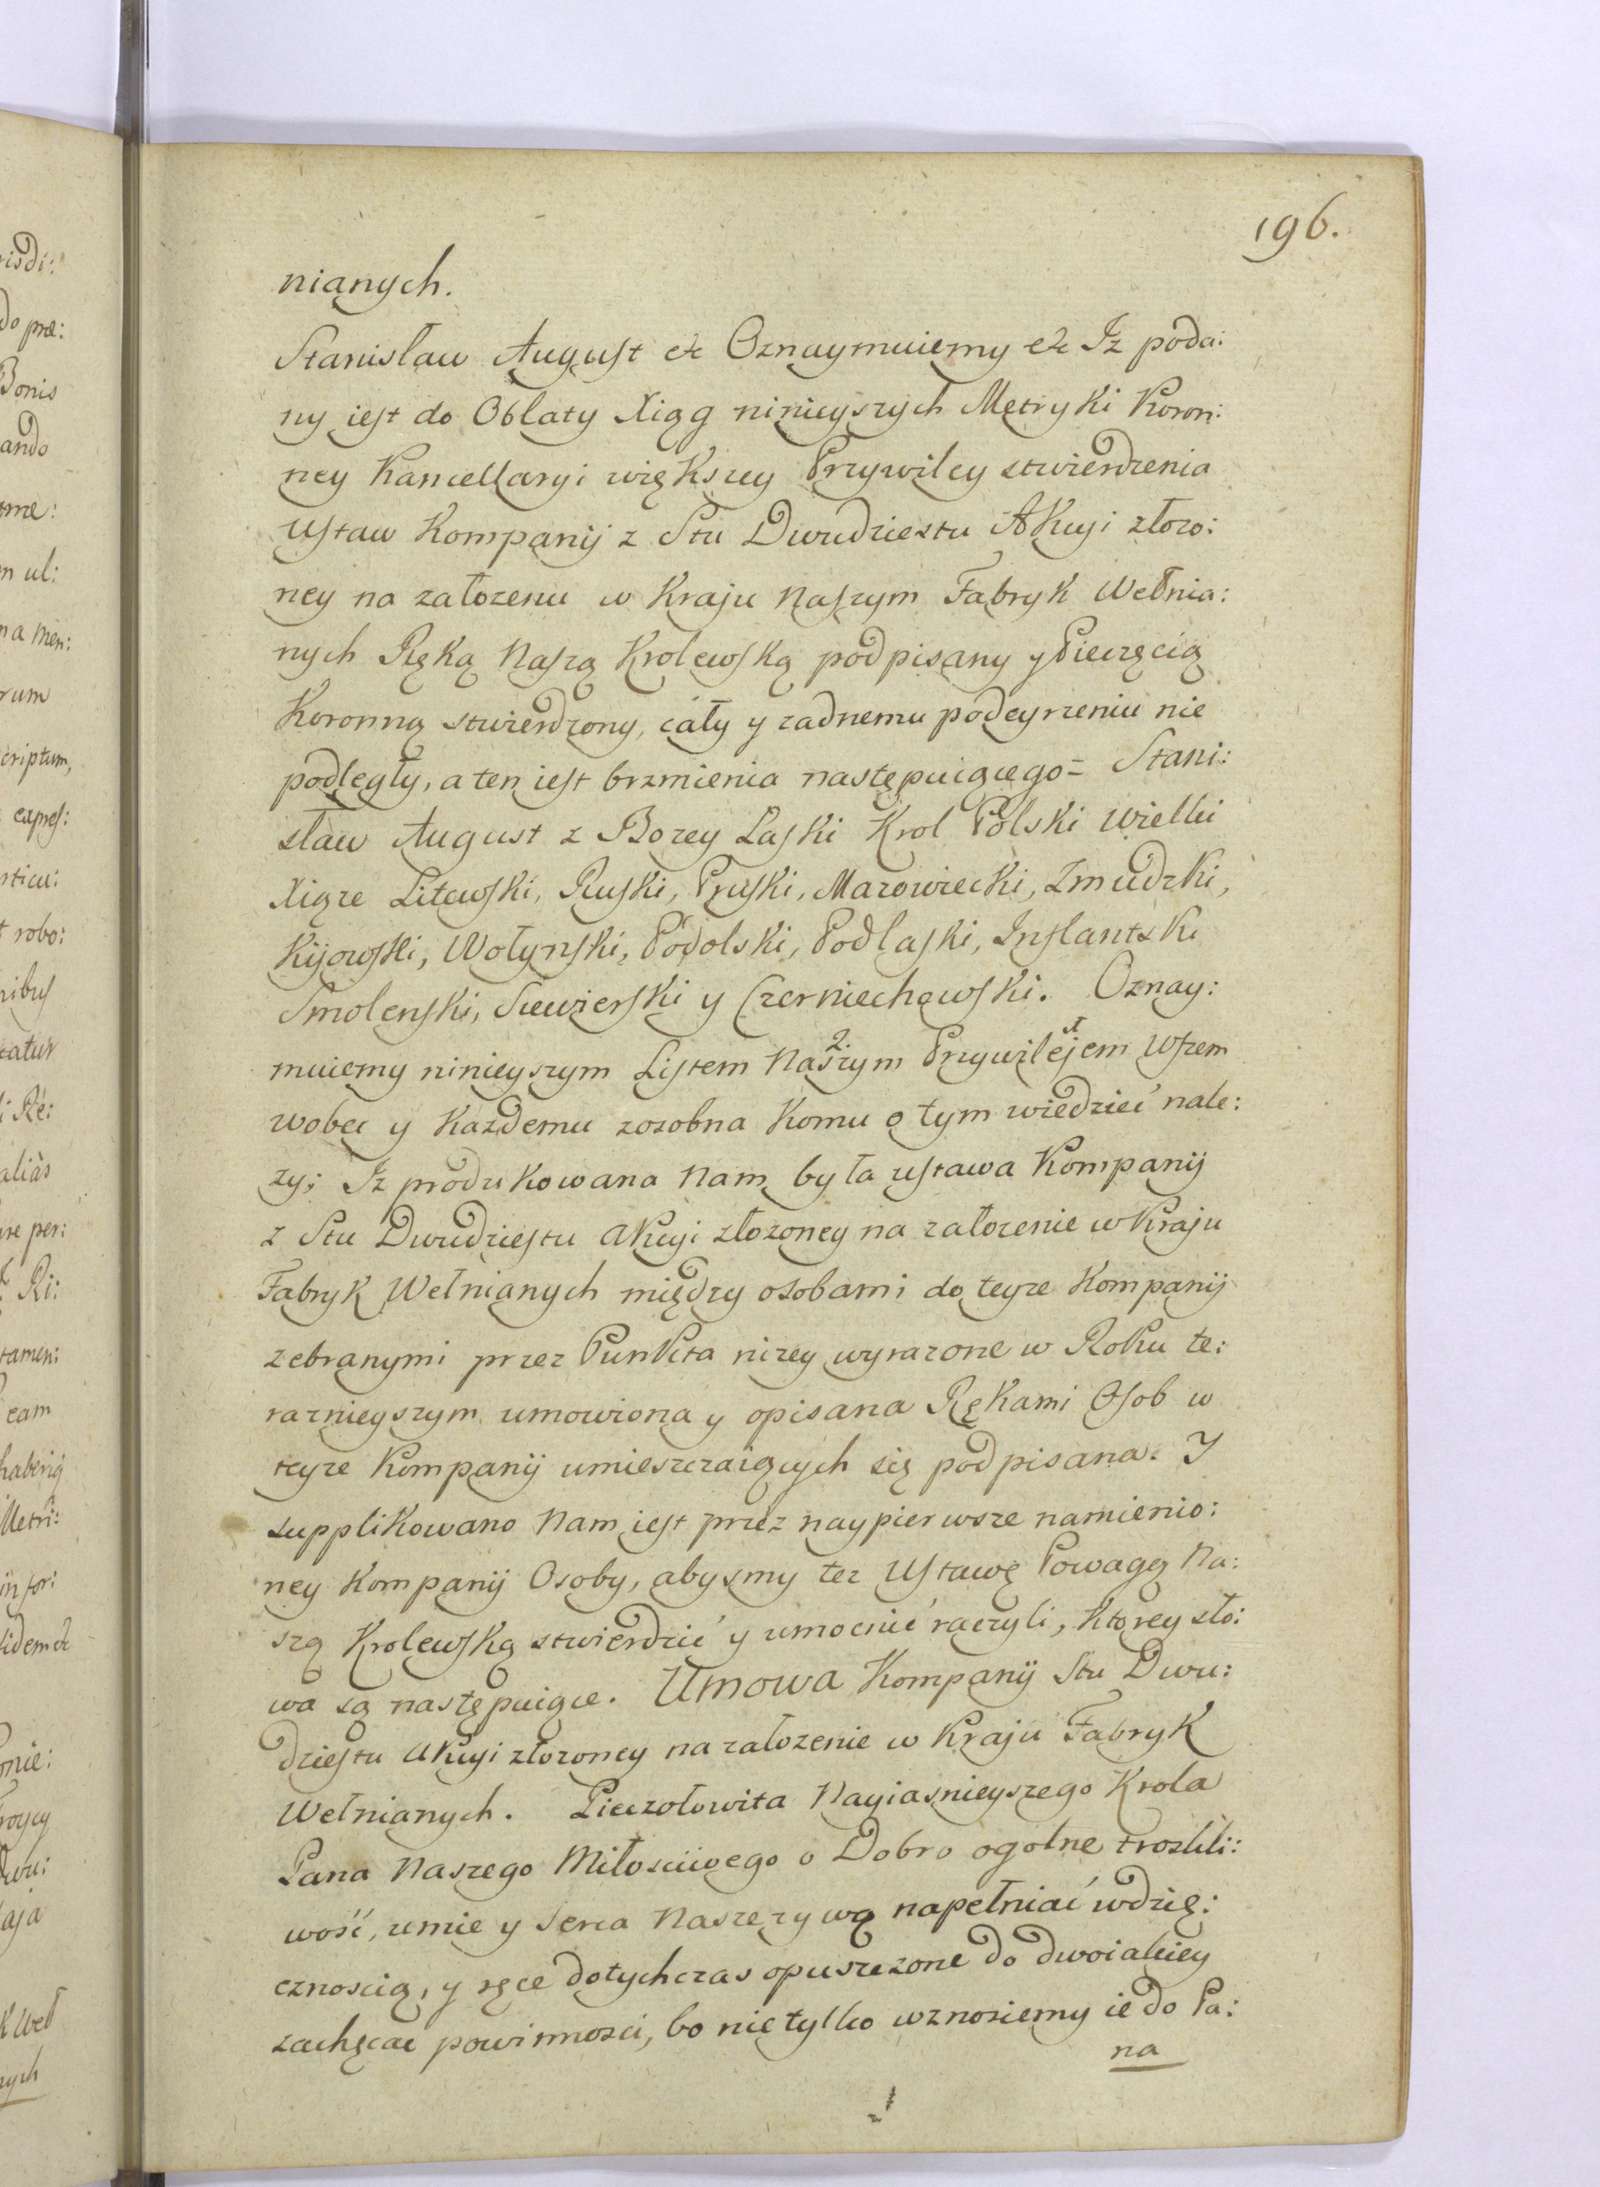 196.
nianych.
Stanisław August etc Oznaymuiemy etc Iz poda:
ny iest do Oblaty Xiąg ninieyszych Metryki Koron:
ney Kancellaryi większey Przywiley stwierdzenia
Ustaw Kompanij z Stu Dwudziestu Akcyi złozo:
ney na załozenu w Kraju Naszym Fabryk Wełnia:
nych Ręką Naszą Krolewską podpisany y Pieczęcią
Koronną stwierdzony, cały y zadnemu podeyrzeniu nie
podległy, a ten iest brzmienia następuiącego= Stani:
sław August z Bozey Łaski Krol Polski Wielki
Xiąze Litewski, Ruski, Pruski, Mazowiecki, Zmudzki,
Kijowski, Wołynski, Podolski, Podlaski, Inflantski
Smolenski, Siewierski y Czerniechowski. Oznay:
muiemy ninieyszym Listem Naszym Przywilejem Wszem
wobec y Kazdemu zosobna Komu o tym wiedzieć nale:
zy; Iz produkowana Nam była ustawa Kompanij
z Stu Dwudziestu Akcyi złozoney na załozenie w Kraju
Fabryk Wełnianych między osobami do teyze Kompanij
zebranymi przez Punkta nizey wyrazone w Roku te:
raznieyszym umowiona y opisana Rękami Osob w
teyze Kompanij umieszczaiących się podpisana. I
supplikowano Nam iest przez naypierwsze namienio:
ney Kompanij Osoby, abysmy tez Ustawę Powagą Na:
szą Krolewską stwierdzić y umocnić raczyli, ktorey sło:
wa są następuiące. Umowa Kompanij Stu Dwu:
dziestu Akcyi złozoney na załozenie w Kraju Fabryk
Wełnianych. Pieczołowita Nayiasnieyszego Krola
Pana Naszego Miłosciwego o Dobro ogolne troskli:
wość, umie y serca Nasze zywą napełniać wdzię:
cznoscią, y ręce dotychczas opuszczone do dwoiakiey
zachęcac powinnosci, bo nie tylko wznosiemy ie do Pa:
na